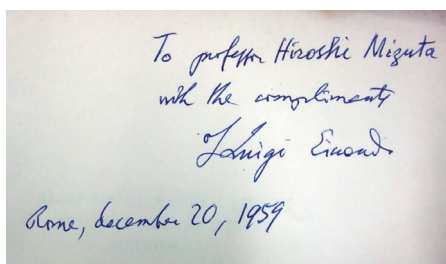 To professor Hiroshi Mizuta
with the compliments
of Luigi Einaudi
Rome, december 20, 1959